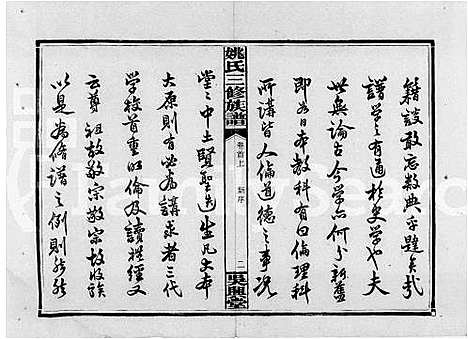 籍談敢忘數典乎蹉夫我
譜學之有通於史學也夫
世無論古今學六何分新舊
即如日本教科有曰倫理科
所講皆人倫道德之事況
姚氏三修族譜
卷首上
新序
二
吳興堂
堂之中土賢聖迭生凡大本
大原則有必為講求者三代
學校首重明倫及讀禮經又
云尊祖故敬宗敬宗故收族
以是為脩譜之例則然然